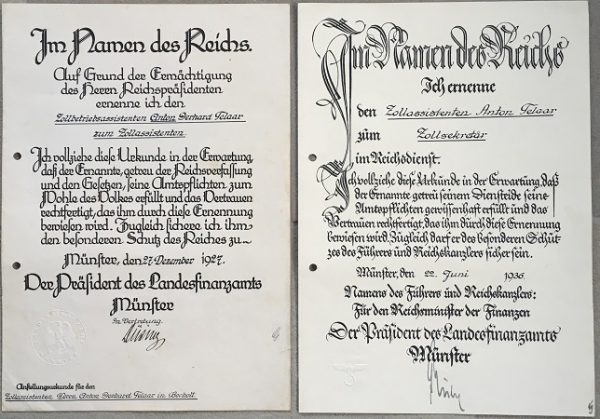 Im Namen des Reichs.
Auf Grund der Ermächtigung
des Herrn Reichspräsidenten
ernenne ich den
Zollbetriebsassistenten Anton Gerhard Telaar
zum Zollassistenten
Ich vollziehe diese Urkunde in der Erwartung,
daß der Ernannte, getreu der Reichsverfassung
und den Gesetzen, seine Amtspflichten zum
Wohle des Volkes erfüllt und das Vertrauen
rechtfertigt, das ihm durch diese Ernennung
bewiesen wird. Zugleich sichere ich ihm
den besonderen Schutz des Reiches zu.
Münster, den 27. Dezember 1927.
Der Präsident des Landesfinanzamts
Münster
In Vertretung
Anstellungsurkunde für den
Zollassistenten Herrn Anton Gerhard Telaar in Bocholt.
Im Namen des Reichs
Ich ernenne
den Zollassistenten Anton Telaar
zum Zollsekretär
im Reichsdienst.
Ich vollziehe diese Urkunde in der Erwartung, daß
der Ernannte getreu seinem Diensteide seine
Amtspflichten gewissenhaft erfüllt und das
Vertrauen rechtfertigt, das ihm durch diese Ernennung
bewiesen wird. Zugleich darf er des besonderen Schut-
zes des Führers und Reichskanzlers sicher sein.
Münster, den 22. Juni 1936
Namens des Führers und Reichskanzlers:
Für den Reichsminister der Finanzen
Der Präsident des Landesfinanzamts
Münster